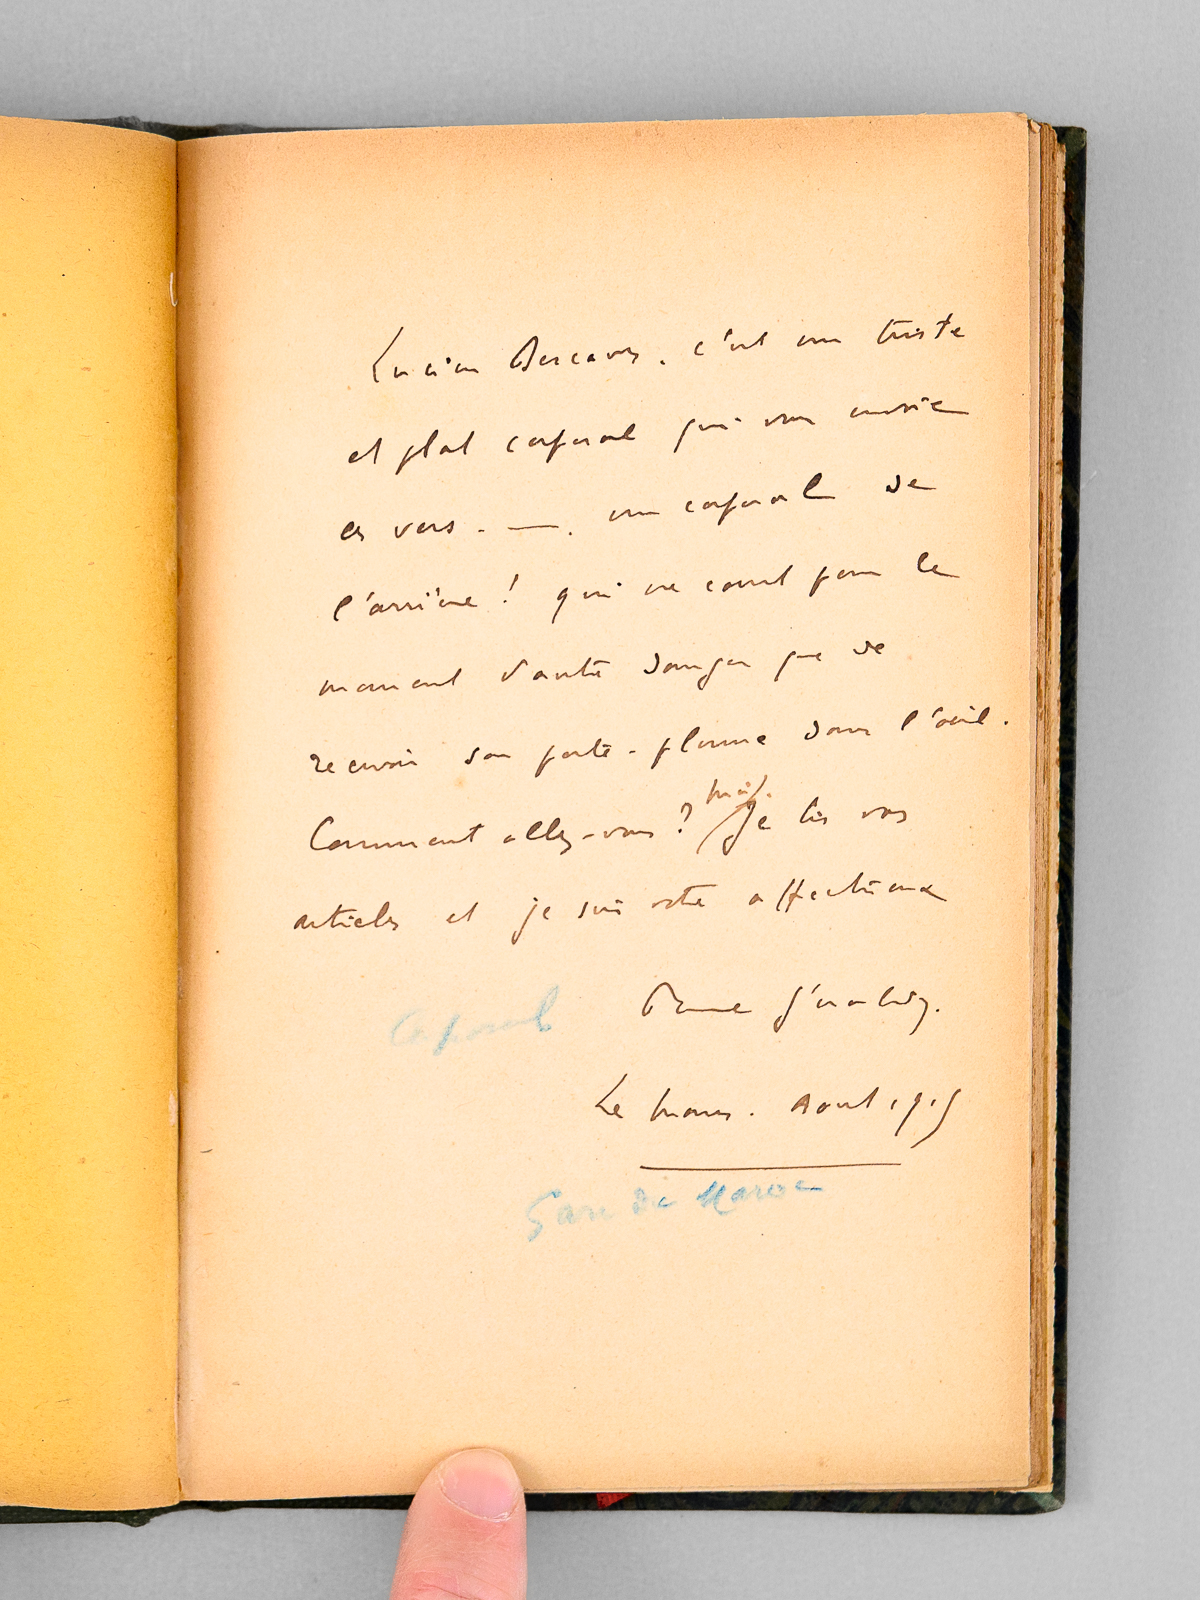 Lucien Descaves, c'est un triste
et plat caporal qui vous envoie
ces vers. — . un caporal de
l'arrière ! qui ne court pour le
moment d'autre danger que de
recevoir son porte-plume dans l'œil.
Comment allez-vous ? Moi, je lis vos
articles et je suis votre affectueux
Géraldy.
Caporal
Le Mans. Aout 1915
Gare de Maroc